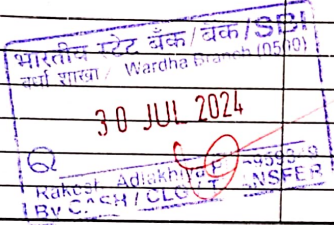 भारतीय स्टेट बँक/बैंक/SBI
वर्धा शाखा / Wardha Branch (0500)
30 JUL 2024
Rakesh
By CASH / CLG / TRANSFER